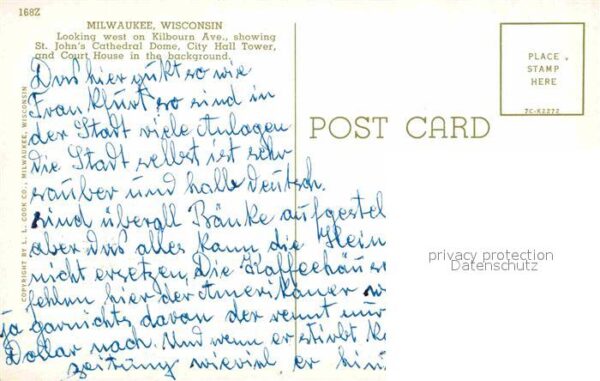 168Z
MILWAUKEE, WISCONSIN
Looking west on Kilbourn Ave., showing
St. John's Cathedral Dome, City Hall Tower,
and Court House in the background.
Das hier gukt so wie
Frankfurt so sind in
der Stadt viele Anlagen
die Stadt selbst ist sehr
sauber und halb deutsch.
sind überall Bänke aufgestel
aber das alles kann die Hein
nicht ersetzen, Die Kaffeehäuser
fehlen hier der Amerikaner w
ja garnichts davon der rennt nur
Dollar nach. Und wenn er stirbt
zeitung wieviel er hin
COPYRIGHT BY L. L. COOK CO., MILWAUKEE, WISCONSIN
POST CARD
PLACE
STAMP
HERE
7C-K2272
privacy protection
Datenschutz